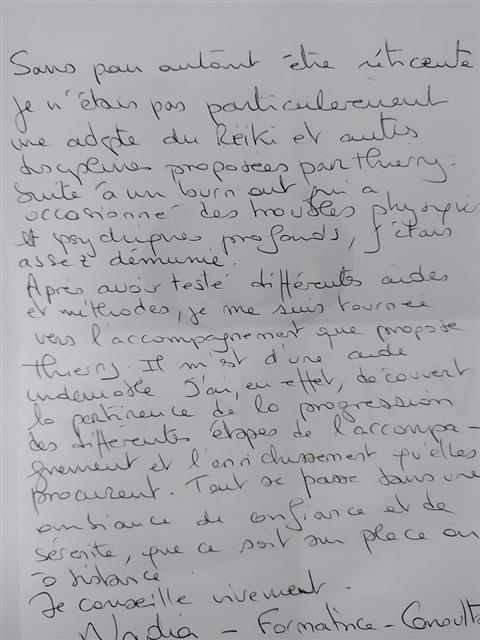 Sans pour autant être réticente
je n'étais pas particulèrement
une adepte du Reiki et autres
disciplines proposées par Thierry.
Suite à un burn out qui a
occasionné des troubles physiques
et psychiques profonds, j'étais
assez démunie.
Après avoir testé différents aides
et méthodes, je me suis tournée
vers l'accompagnement que propose
Thierry. Il m'est d'une aide
indéniable J'ai, en effet, découvert
la pertinence de la progression
des différentes étapes de l'accompa-
gnement et l'enrichissement qu'elles
procurent. Tout se passe dans une
ambiance de confiance et de
sérénité, que ce soit sur place ou
à distance.
Je conseille vivement.
Nadia - Formatrice - Consulta